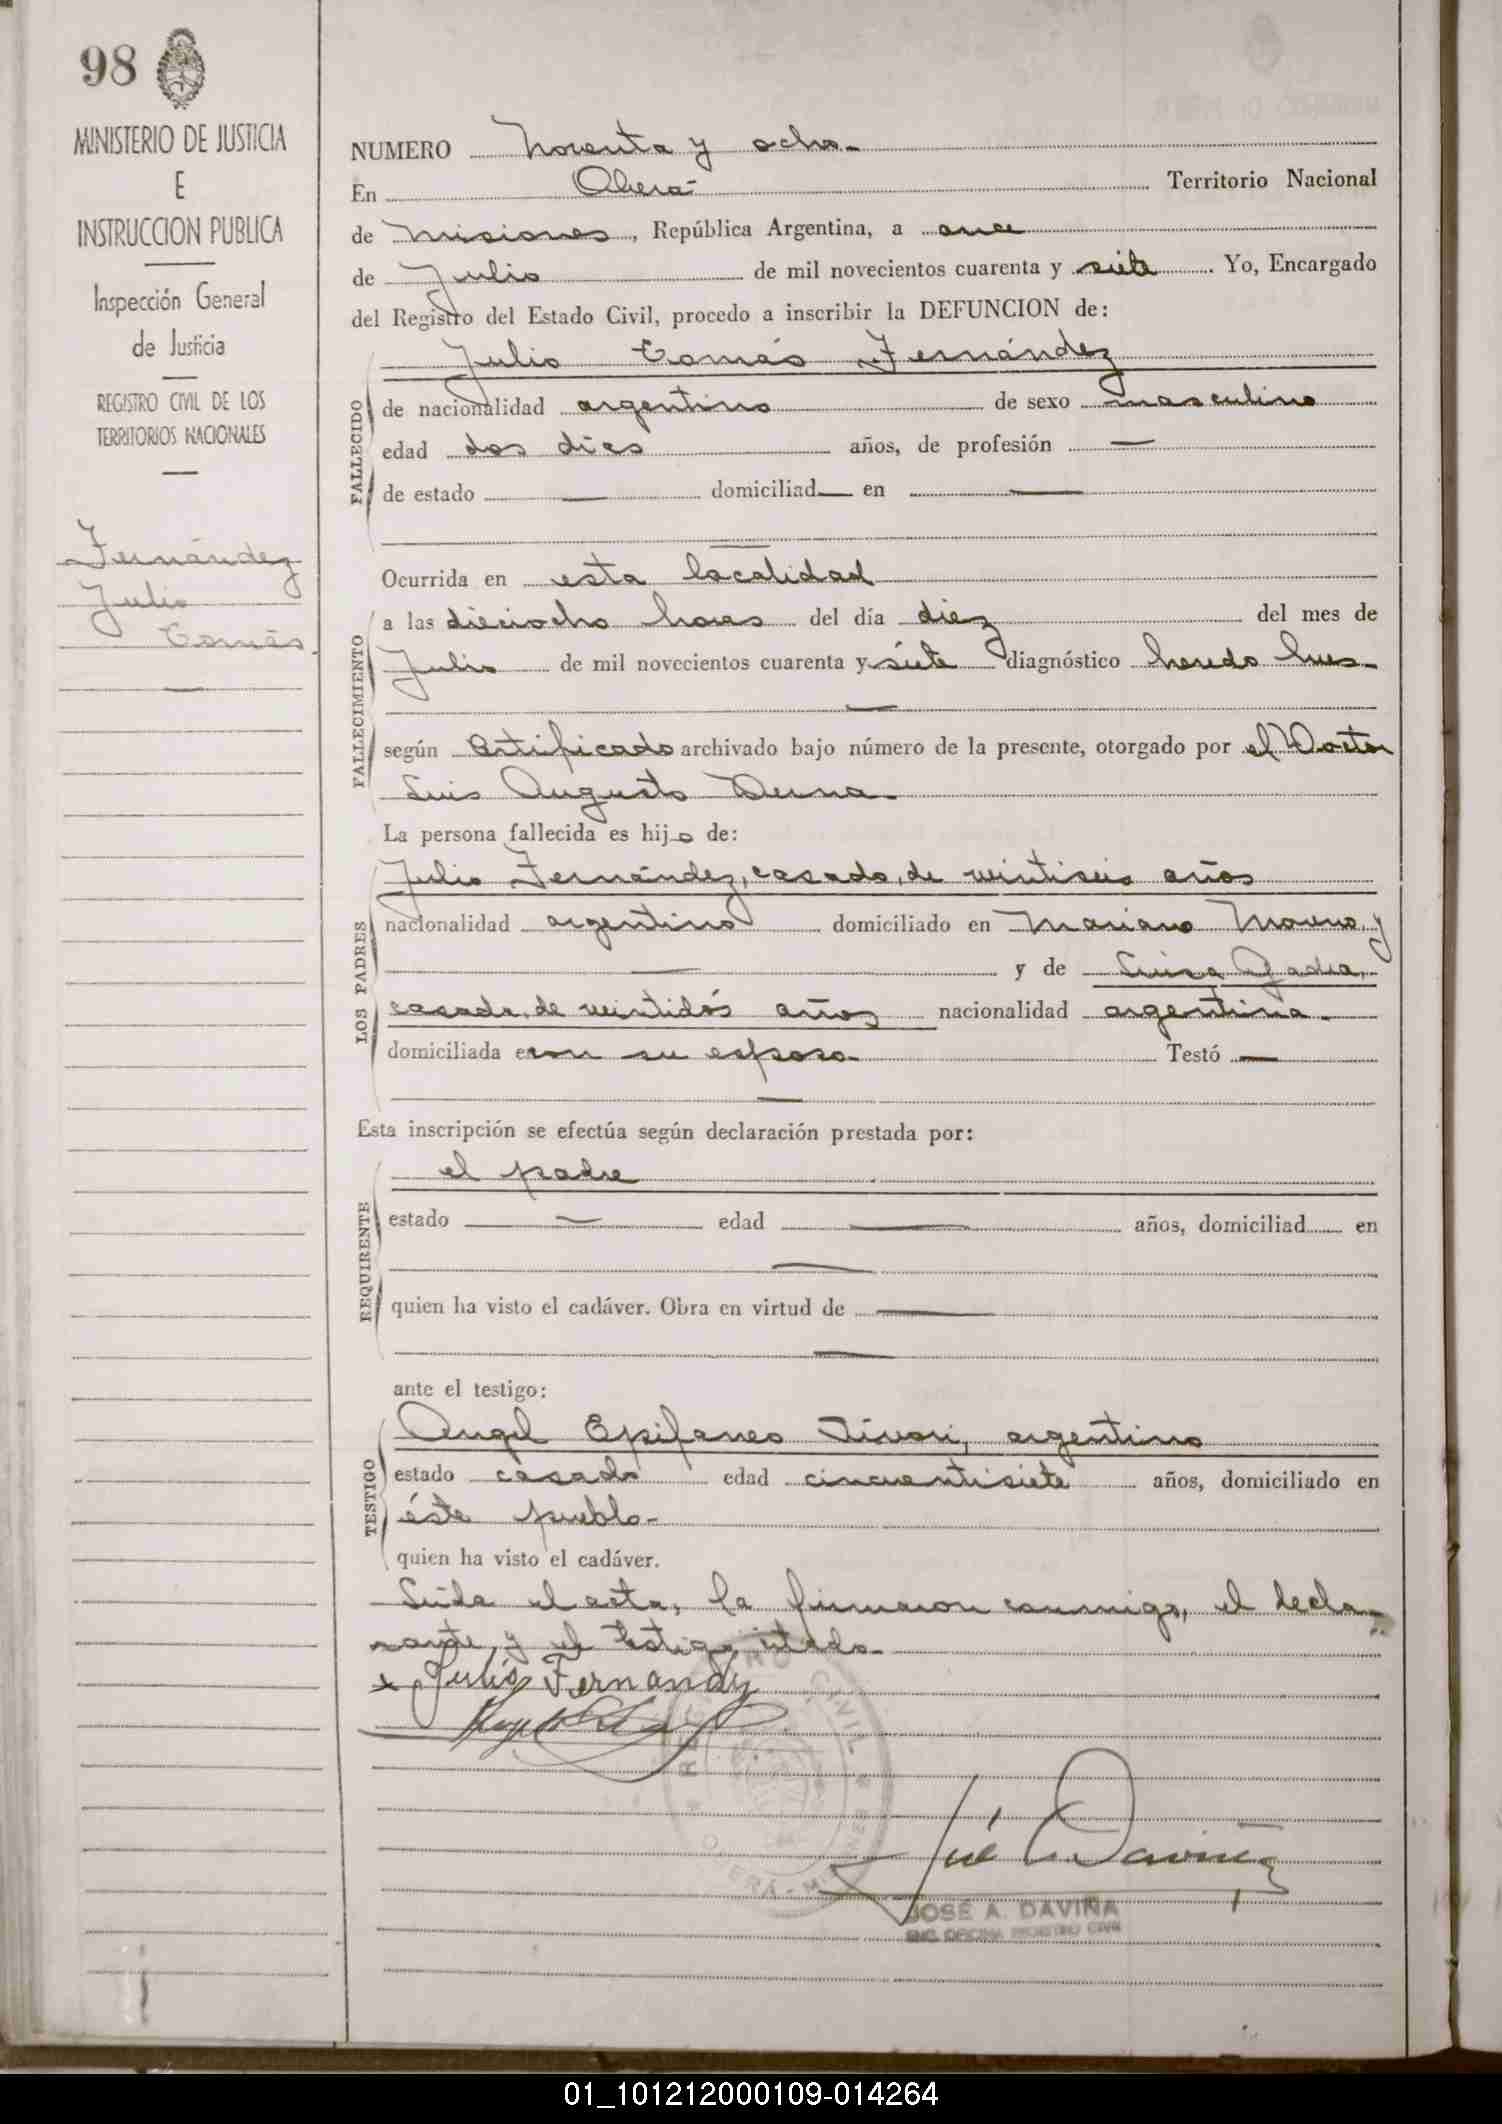 98
MINISTERIO DE JUSTICIA
E
INSTRUCCION PUBLICA
Inspección General
de Justicia
REGISTRO CIVIL DE LOS
TERRITORIOS NACIONALES
Fernández
Julio
Tomás.
NUMERO Noventa y ocho.
En Oberá Territorio Nacional
de Misiones, República Argentina, a once
de Julio de mil novecientos cuarenta y siete. Yo, Encargado
del Registro del Estado Civil, procedo a inscribir la DEFUNCION de:
Julio Tomás Fernández
FALLECIDO
de nacionalidad argentino de sexo masculino
edad dos dies años, de profesión —
de estado — domiciliad— en —
Ocurrida en esta localidad
FALLECIMIENTO
a las dieciocho horas del día diez del mes de
Julio de mil novecientos cuarenta y siete diagnóstico heredo lues
según certificado archivado bajo número de la presente, otorgado por el Doctor
Luis Augusto
La persona fallecida es hijo de:
LOS PADRES
Julio Fernández, casado, de veintiseis años
nacionalidad argentino domiciliado en Mariano Moreno, y
— y de Luisa
casada, de veintidós años nacionalidad argentina.
domiciliada con su esposo. Testó —
Esta inscripción se efectúa según declaración prestada por:
el padre
REQUIRENTE
estado — edad — años, domiciliad en
—
quien ha visto el cadáver. Obra en virtud de —
—
ante el testigo:
TESTIGO
Angel Epifaneo argentino
estado casado edad cincuentisiete años, domiciliado en
éste pueblo.
quien ha visto el cadáver.
Leída el acta, la firmaron conmigo, el decla-
rante, y el testigo citado.
x Julio Fernandez
REGISTRO CIVIL
OBERÁ - MISIONES
José A Daviña
JOSÉ A. DAVIÑA
ENC. OFICINA REGISTRO CIVIL
01_101212000109-014264